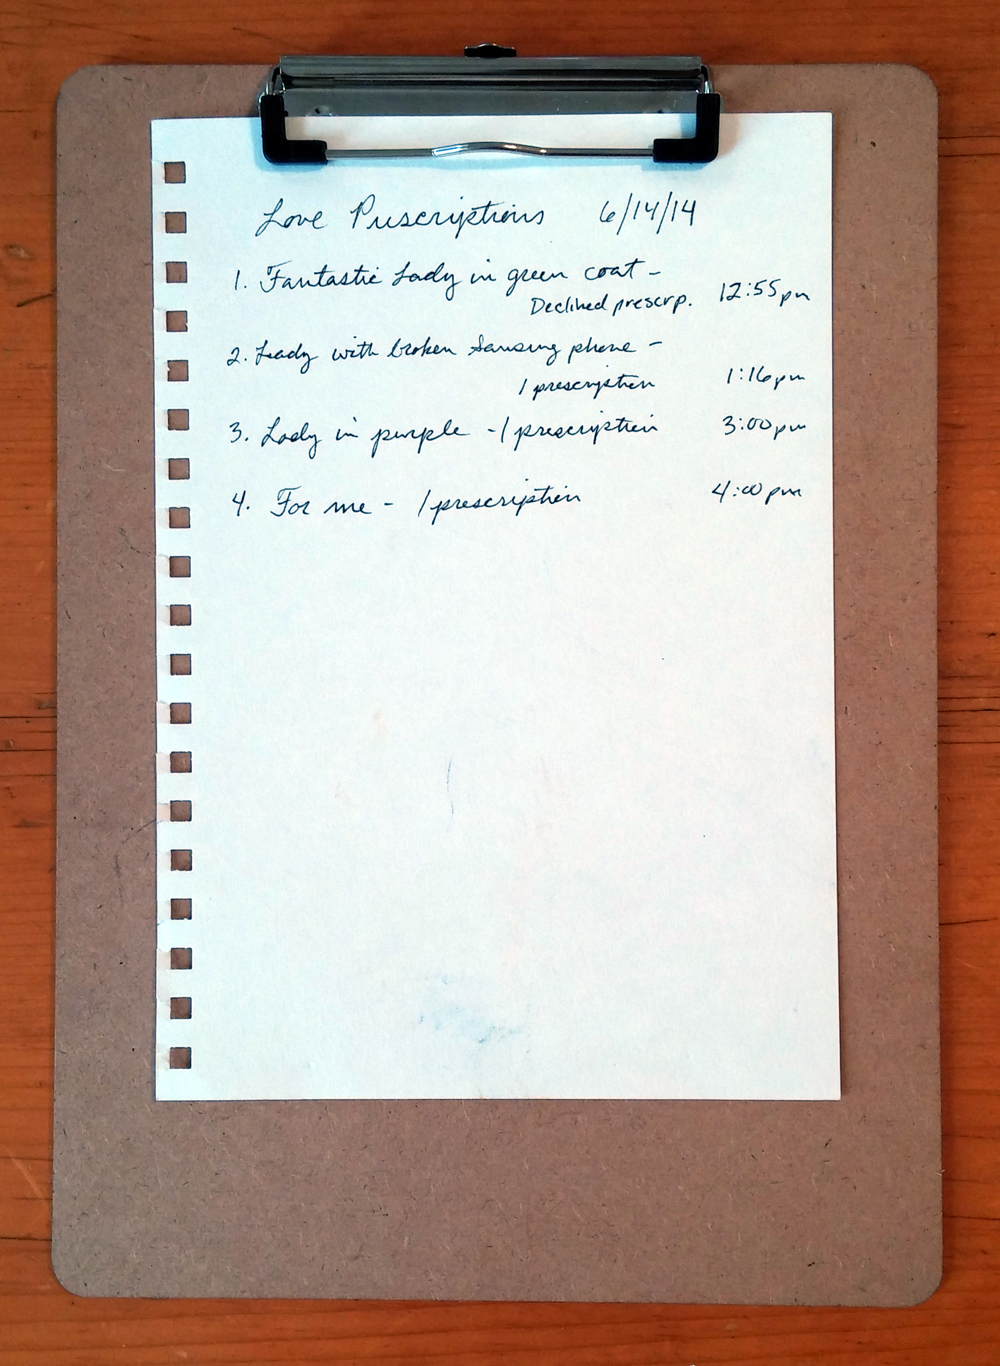 Love Prescriptions 6/14/14
1. Fantastic Lady in green coat -
Declined prescrp. 12:55pm
2. Lady with broken Samsung phone -
1 prescription 1:16pm
3. Lady in purple - 1 prescription 3:00pm
4. For me - 1 prescription 4:00pm